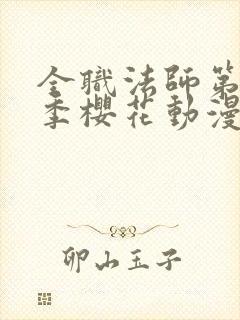 全職法師第
季櫻花動漫
卯山玉子